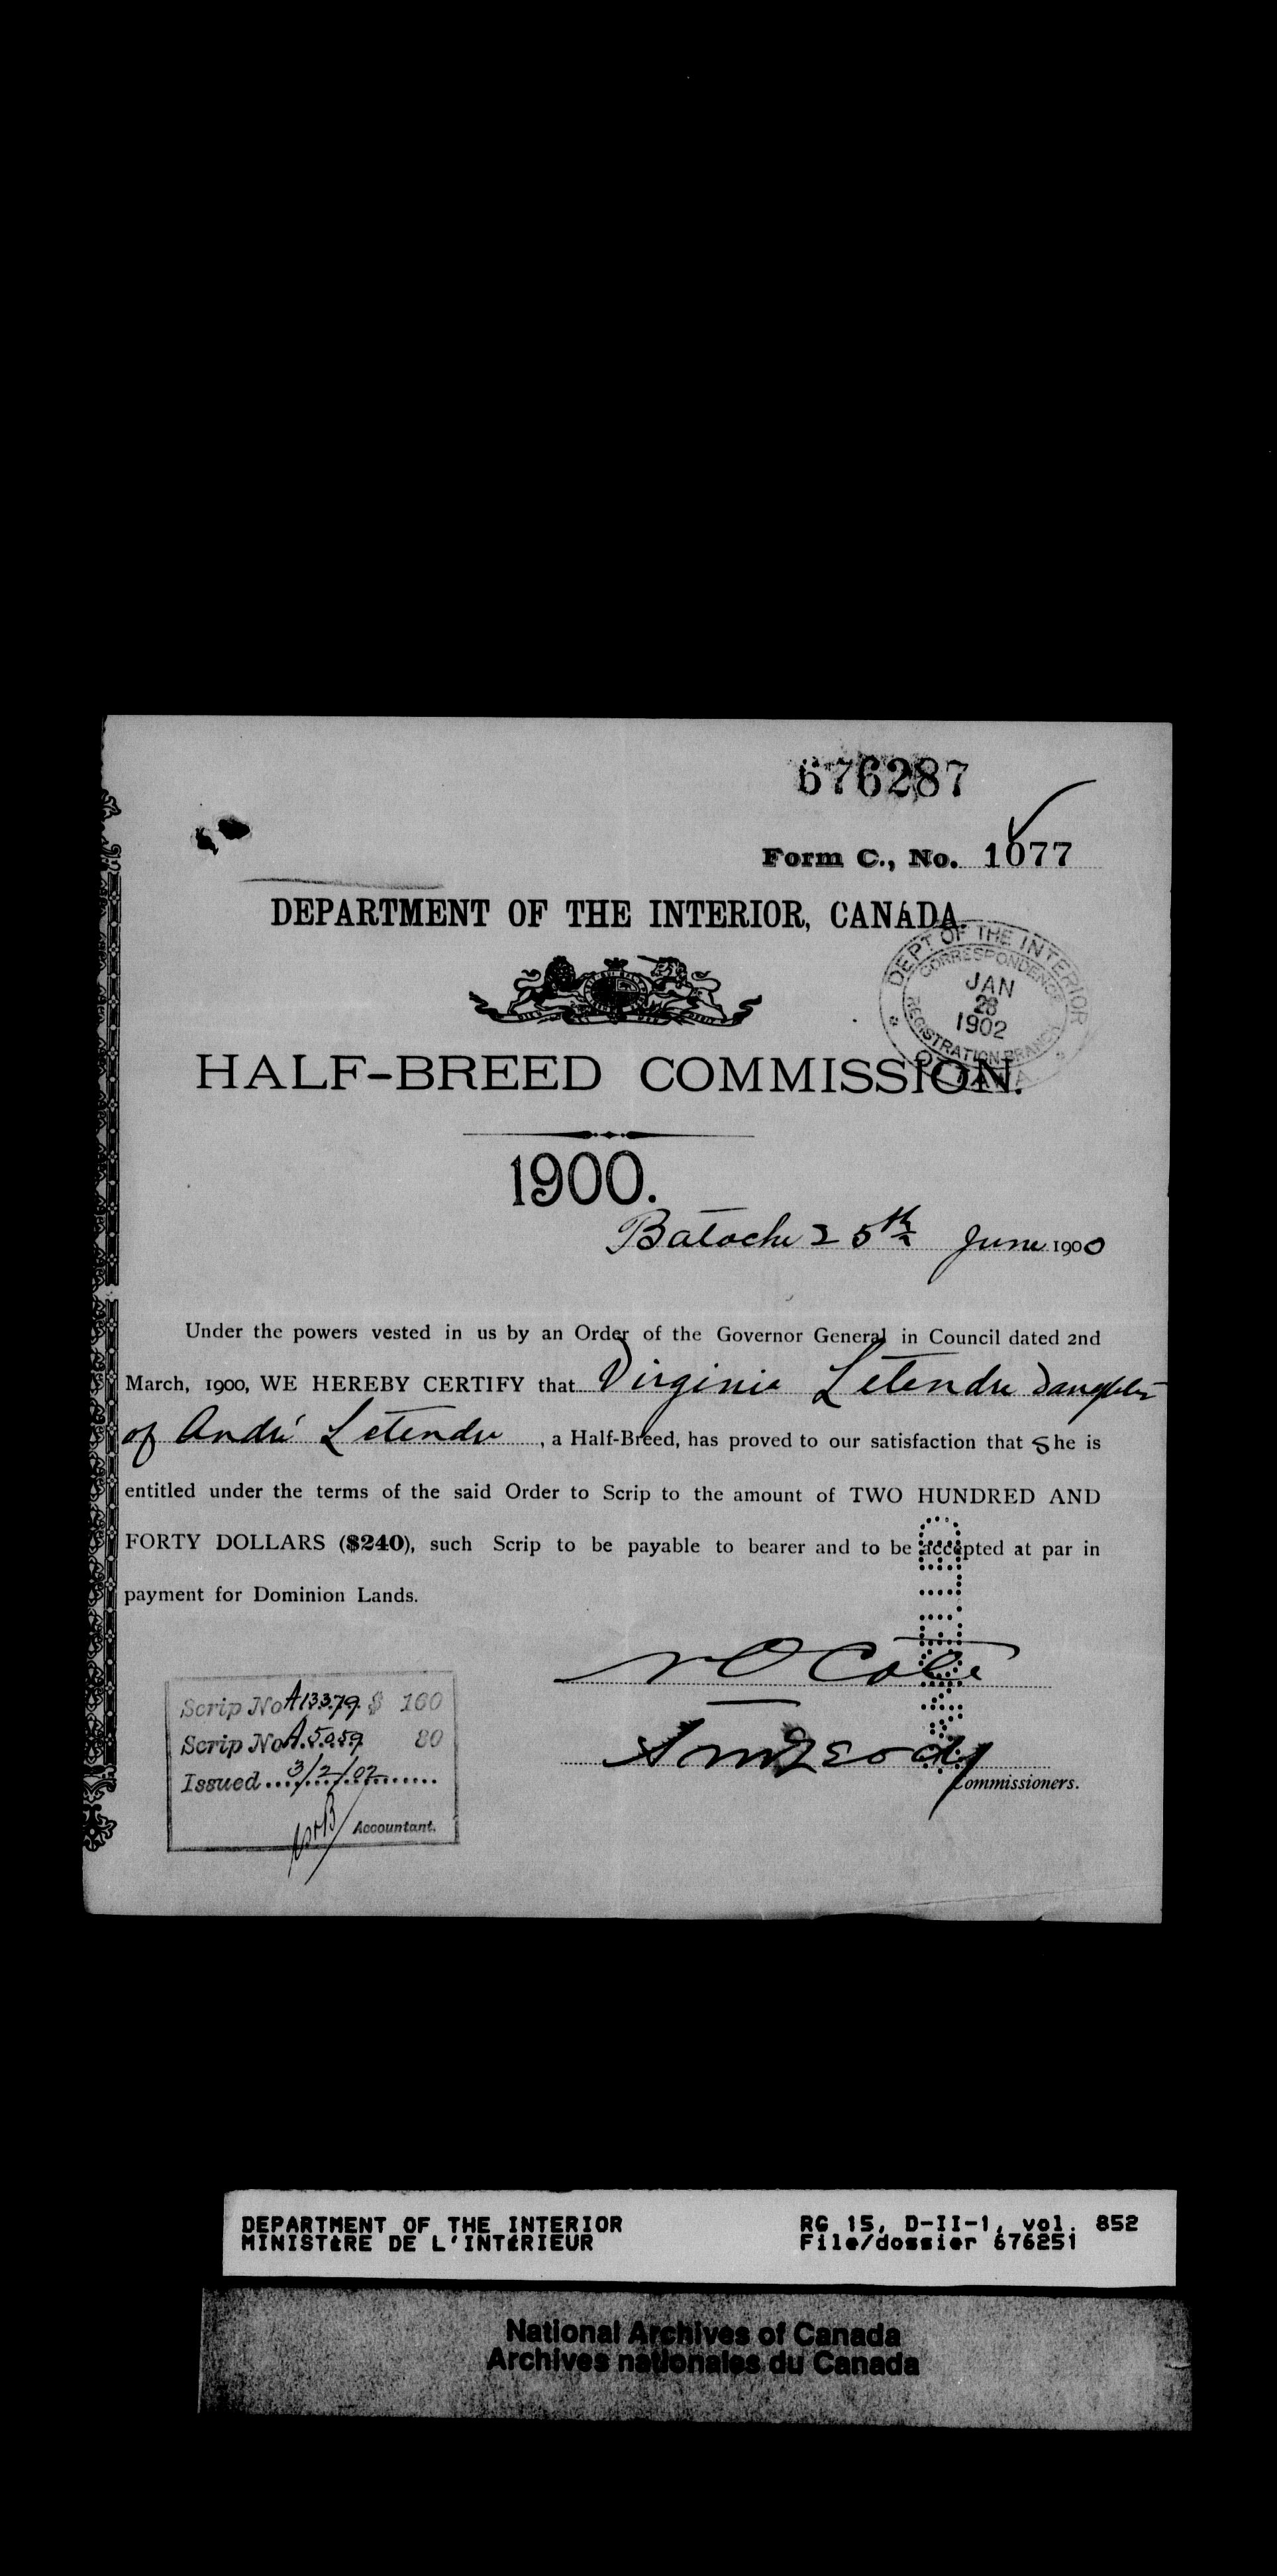 676287
Form C., No. 1077
DEPARTMENT OF THE INTERIOR, CANADA.
DEPT OF THE INTERIOR
CORRESPONDENCE
JAN
28
1902
REGISTRATION BRANCH
OTTAWA
HALF-BREED COMMISSION.
1900.
Batoche 25th June 1900
Under the powers vested in us by an Order of the Governor General in Council dated 2nd
March, 1900, WE HEREBY CERTIFY that Virginia Letendre Daughter
of André Letendre, a Half-Breed, has proved to our satisfaction that She is
entitled under the terms of the said Order to Scrip to the amount of TWO HUNDRED AND
FORTY DOLLARS ($240), such Scrip to be payable to bearer and to be accepted at par in
payment for Dominion Lands.
N O Coté
Commissioners.
Scrip No A13379. $ 160
Scrip No A.5059 80
Issued 3/2/02
Accountant.
DEPARTMENT OF THE INTERIOR
MINISTÈRE DE L'INTÉRIEUR
RG 15, D-II-1, vol. 852
File/dossier 676251
National Archives of Canada
Archives nationales du Canada